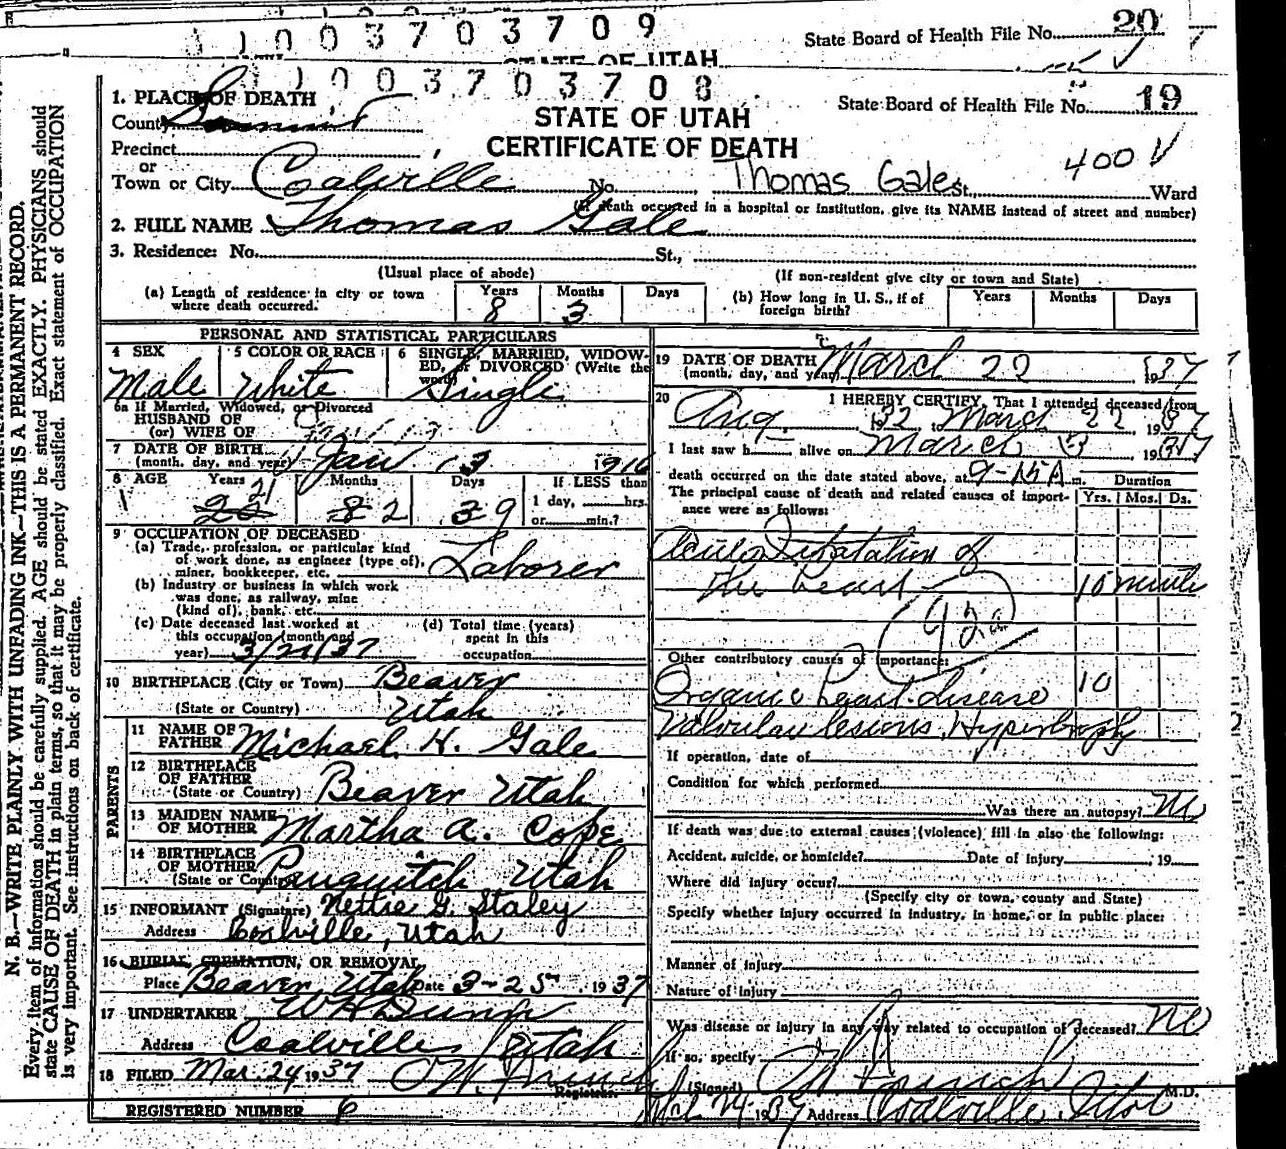 1003703709
State Board of Health File No. 20
STATE OF UTAH
1003703708
State Board of Health File No. 19
1. PLACE OF DEATH
County Summit
STATE OF UTAH
CERTIFICATE OF DEATH
Precinct
or
Town or City Coalville No. Thomas Gale St. 400 Ward
(If death occurred in a hospital or institution, give its NAME instead of street and number)
2. FULL NAME Thomas Gale
3. Residence: No. St.,
(Usual place of abode) (If non-resident give city or town and State)
(a) Length of residence in city or town where death occurred. Years 8 Months 3 Days
(b) How long in U. S., if of foreign birth? Years Months Days
PERSONAL AND STATISTICAL PARTICULARS
4 SEX Male
5 COLOR OR RACE White
6 SINGLE, MARRIED, WIDOWED, or DIVORCED (Write the word) Single
6a If Married, Widowed, or Divorced
HUSBAND OF
(or) WIFE OF
7 DATE OF BIRTH
(month, day, and year) Jan 13 1916
8 AGE Years 22 21 Months 8 2 Days 39 9 If LESS than 1 day, hrs. or min.?
9 OCCUPATION OF DECEASED
(a) Trade, profession, or particular kind
of work done, as engineer (type of),
miner, bookkeeper, etc. Laborer
(b) Industry or business in which work
was done, as railway, mine
(kind of), bank, etc.
(c) Date deceased last worked at
this occupation (month and
year) 3/21/37
(d) Total time (years)
spent in this
occupation
10 BIRTHPLACE (City or Town) Beaver
(State or Country) Utah
PARENTS
11 NAME OF
FATHER Michael H. Gale
12 BIRTHPLACE
OF FATHER
(State or Country) Beaver Utah
13 MAIDEN NAME
OF MOTHER Martha A. Cope
14 BIRTHPLACE
OF MOTHER
(State or Country) Panguitch Utah
15 INFORMANT (Signature) Nettie G. Staley
Address Coalville, Utah
16 BURIAL, CREMATION, OR REMOVAL
Place Beaver Utah Date 3-25 1937
17 UNDERTAKER W H Dunn
Address Coalville Utah
18 FILED Mar. 24 1937
Registrar.
REGISTERED NUMBER 6
19 DATE OF DEATH
(month, day, and year) March 22 1937
20 I HEREBY CERTIFY, That I attended deceased from
Aug. 1932, to March 22, 1937
I last saw h alive on March 1937
death occurred on the date stated above, at 9-15 A m. Duration
The principal cause of death and related causes of importance were as follows: Yrs. Mos. Ds.
Acute Dilatation of
the heart 10 minutes
92a
Other contributory causes of importance:
Organic heart disease 10
Valvular lesions, Hypertrophy
If operation, date of
Condition for which performed
Was there an autopsy? No
If death was due to external causes (violence) fill in also the following:
Accident, suicide, or homicide? Date of Injury , 19
Where did injury occur?
(Specify city or town, county and State)
Specify whether injury occurred in industry, in home, or in public place:
Manner of injury
Nature of injury
Was disease or injury in any way related to occupation of deceased? No
If so, specify
(Signed) M.D.
Mch 24 1937 Address Coalville Utah
N. B.—WRITE PLAINLY WITH UNFADING INK—THIS IS A PERMANENT RECORD.
Every item of information should be carefully supplied. AGE should be stated EXACTLY. PHYSICIANS should
state CAUSE OF DEATH in plain terms, so that it may be properly classified. Exact statement of OCCUPATION
is very important. See instructions on back of certificate.